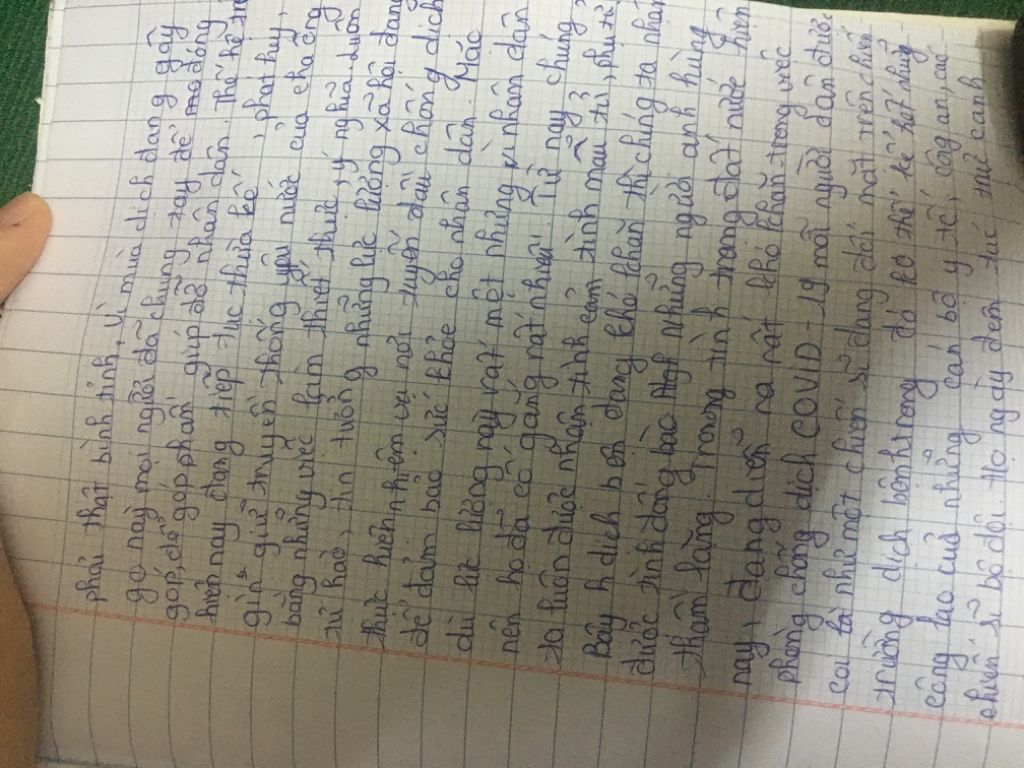 phải thật bình tĩnh, Vì mùa dịch đang gây
go này mọi người đã chung tay để mở đóng
góp, để góp phần giúp đỡ nhân dân. Thế hệ trẻ
hiện nay đang tiếp tục thừa kế, phát huy,
gìn giữ truyền thống yêu nước của cha ông
bằng những việc làm thiết thực, ý nghĩa luôn
tự hào, tin tưởng những lực lượng xã hội đang
thực hiện nhiệm vụ nơi tuyến đầu chống dịch
để đảm bảo sức khỏe cho nhân dân. Mặc
dù lực lượng này vất một nhưng vì nhân dân
nên họ đã cố gắng rất nhiều. Từ nay chúng
ta luôn được nhận tình cảm tình mẫu tử, phụ tử,
Bây h dịch bệnh đang khó khăn thì chúng ta nhận
được tình đồng bào Mọt những người anh hùng
thầm lặng. Trong tình trạng đất nước hiện
nay, đang diễn ra rất khó khăn trong việc
phòng chống dịch COVID-19 mỗi người dân được
coi là như một chiến sĩ đang đối mặt trên chiến
trường dịch bệnh trong đó ko thể kể tới những
công lao của những cán bộ y tế, công an, các
chiến sĩ bộ đội. Họ ngày đêm túc trực canh